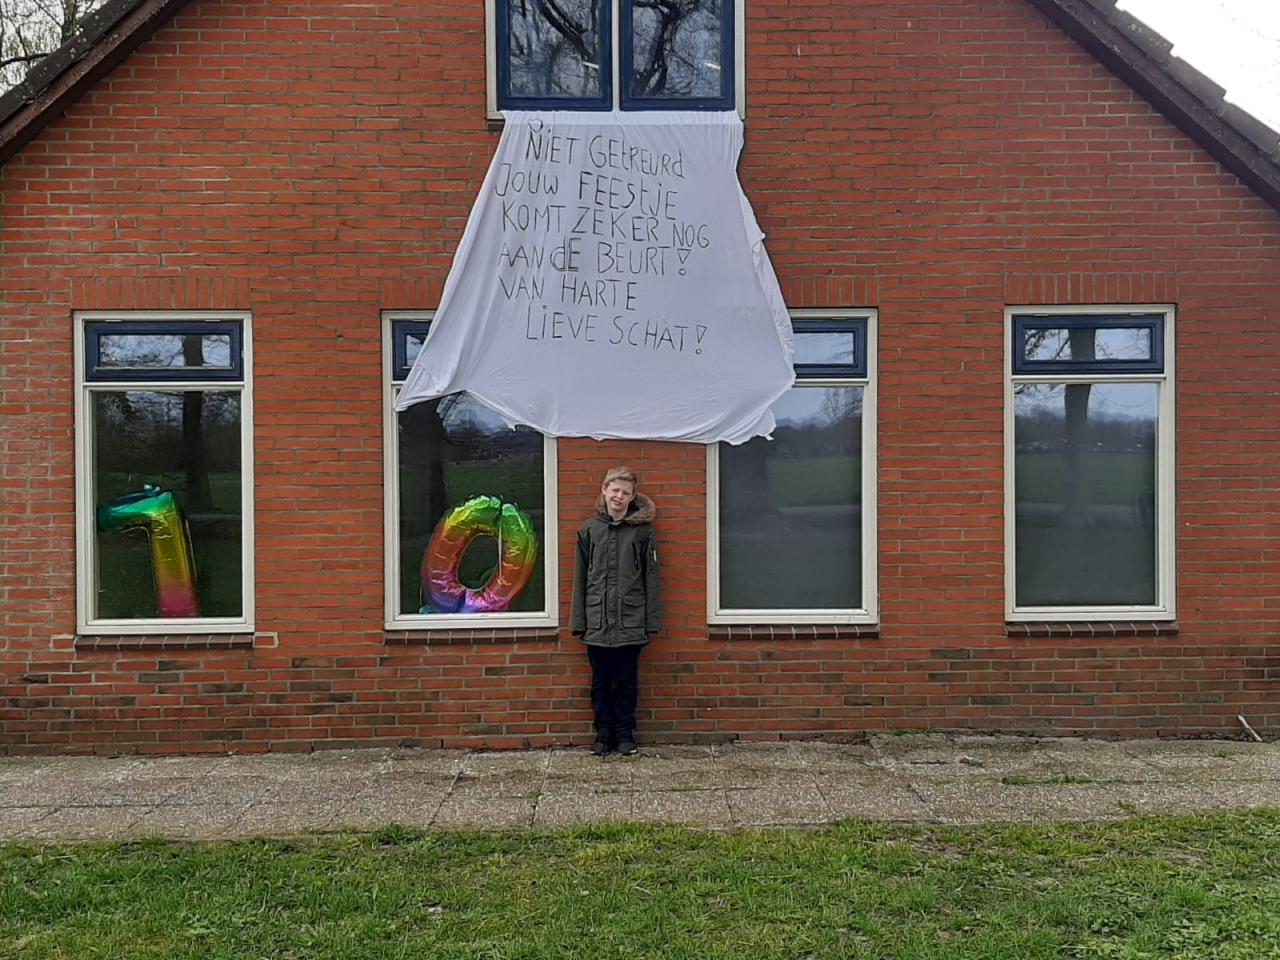 NIET GEtREURd
JOUW FEEStJE
KOMT ZEKER NOG
AAN dE BEURT!
VAN HARTE
LIEVE SCHAT!
10